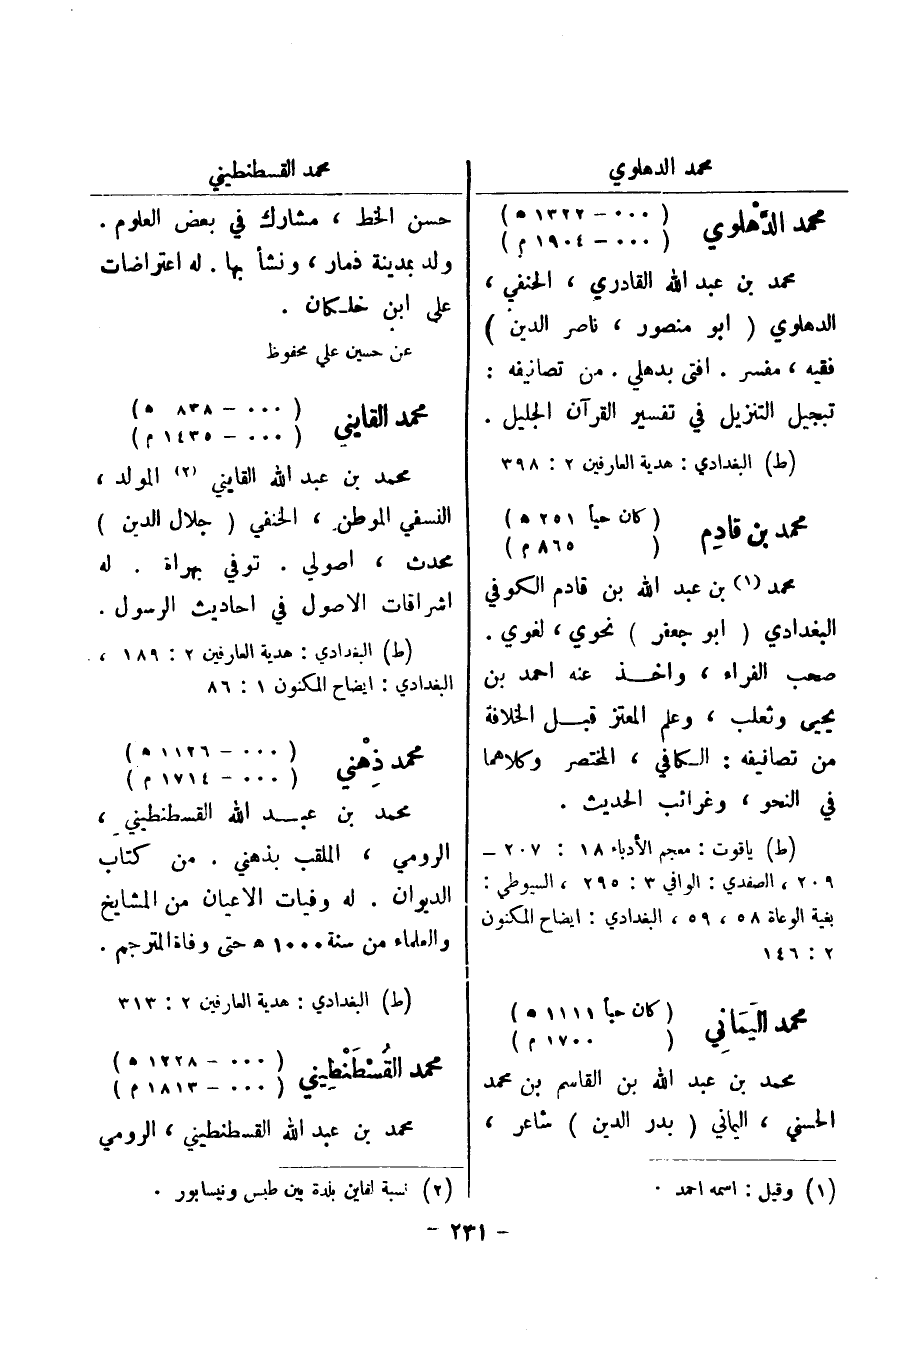 محمد الدهلوي
محمد الدَّهْلوي (٠٠٠ – ١٣٢٢ ه)
(٠٠٠ – ١٩٠٤ م)
محمد بن عبد الله القادري ، الحنفي ،
الدهلوي ( ابو منصور ، ناصر الدين )
فقيه ، مفسر . افتى بدهلي . من تصانيفه :
تبجيل التنزيل في تفسير القرآن الجليل .
(ط) البغدادي : هدية العارفين ٢ : ٣٩٨
محمد بن قادِم (كان حياً ٢٥١ ه)
( ٨٦٥ م)
محمد (١) بن عبد الله بن قادم الكوفي
البغدادي ( ابو جعفر ) نحوي ، لغوي .
صحب الفراء ، واخذ عنه احمد بن
يحيى وثعلب ، وعلم المعتز قبل الخلافة
من تصانيفه : الكافي ، المختصر وكلاهما
في النحو ، وغرائب الحديث .
(ط) ياقوت : معجم الأدباء ١٨ : ٢٠٧ –
٢٠٩ ، الصفدي : الوافي ٣ : ٢٩٥ ، السيوطي :
بغية الوعاة ٥٨ ، ٥٩ ، البغدادي : ايضاح المكنون
٢ : ١٤٦
محمد اليَمَانِي (كان حياً ١١١١ ه)
( ١٧٠٠ م)
محمد بن عبد الله بن القاسم بن محمد
الحسني ، اليماني ( بدر الدين ) شاعر ،
(١) وقيل : اسمه احمد .
محمد القسطنطيني
حسن الخط ، مشارك في بعض العلوم .
ولد بمدينة ذمار ، ونشأ بها . له اعتراضات
على ابن خلكان .
عن حسين علي محفوظ
محمد القايني (٠٠٠ – ٨٣٨ ه)
(٠٠٠ – ١٤٣٥ م)
محمد بن عبد الله القايني (٢) المولد ،
النسفي الموطن ، الحنفي ( جلال الدين )
محدث ، اصولي . توفي بهراة . له
اشراقات الاصول في احاديث الرسول .
(ط) البغدادي : هدية العارفين ٢ : ١٨٩ ،
البغدادي : ايضاح المكنون ١ : ٨٦
محمد ذِهْني (٠٠٠ – ١١٢٦ ه)
(٠٠٠ – ١٧١٤ م)
محمد بن عبد الله القسطنطيني ،
الرومي ، الملقب بذهني . من كتاب
الديوان . له وفيات الاعيان من المشايخ
والعلماء من سنة ١٠٠٠ ه حتى وفاة المترجم .
(ط) البغدادي : هدية العارفين ٢ : ٣١٣
محمد القُسْطَنْطِيني (٠٠٠ – ١٢٢٨ ه)
(٠٠٠ – ١٨١٣ م)
محمد بن عبد الله القسطنطيني ، الرومي
(٢) نسبة لقاين بلدة بين طبس ونيسابور .
– ٢٣١ –